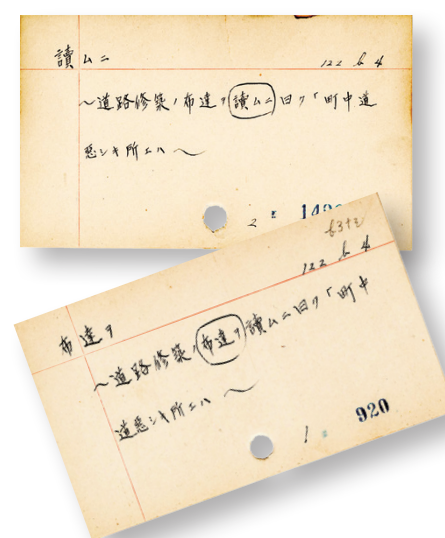 讀ムニ
122 6 4
〜道路修築ノ布達ヲ讀ムニ曰ク「町中道
惡シキ所エハ〜
2
布達ヲ
122 6 4
〜道路修築ノ布達ヲ讀ムニ曰ク「町中
道惡シキ所エハ〜
1
920